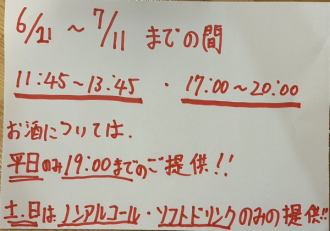 6/21 〜 7/11 までの間
11:45〜13:45 ・ 17:00〜20:00
お酒については、
平日のみ19:00までのご提供!!
土、日はノンアルコール・ソフトドリンクのみの提供!!